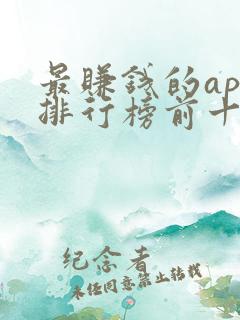 最赚钱的ap
排行榜前十
纪念者
未经同意禁止转载